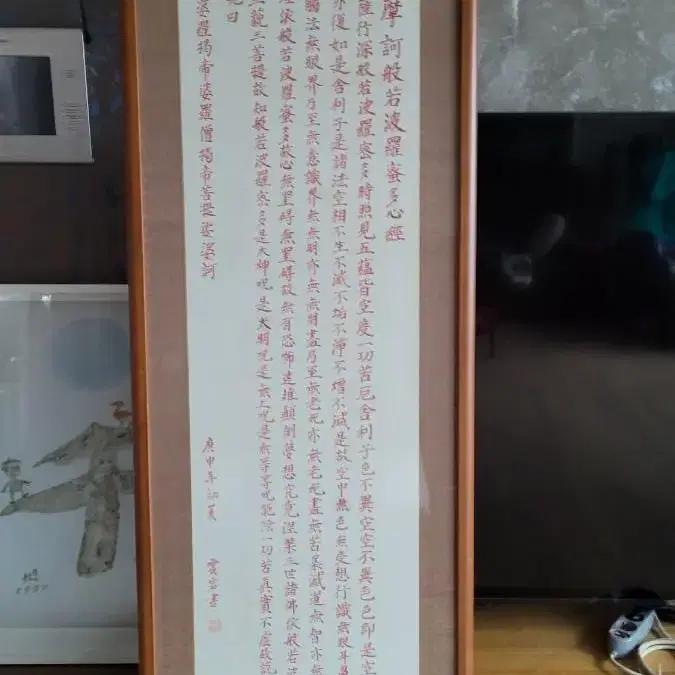 摩訶般若波羅蜜多心經
薩行深般若波羅蜜多時照見五蘊皆空度一切苦厄舍利子色不異空空不異色色即是空
亦復如是舍利子是諸法空相不生不滅不垢不淨不增不減是故空中無色無受想行識無眼耳鼻
觸法無眼界乃至無意識界無無明亦無無明盡乃至無老死亦無老死盡無苦集滅道無智亦無
埵依般若波羅蜜多故心無罣碍無罣碍故無有恐怖遠離顚倒夢想究竟涅槃三世諸佛依般若波
三藐三菩提故知般若波羅蜜多是大神呪是大明呪是無上呪是無等等呪能除一切苦眞實不虛故說
呪曰
婆羅揭帝婆羅僧揭帝菩提娑婆訶
庚申年初夏